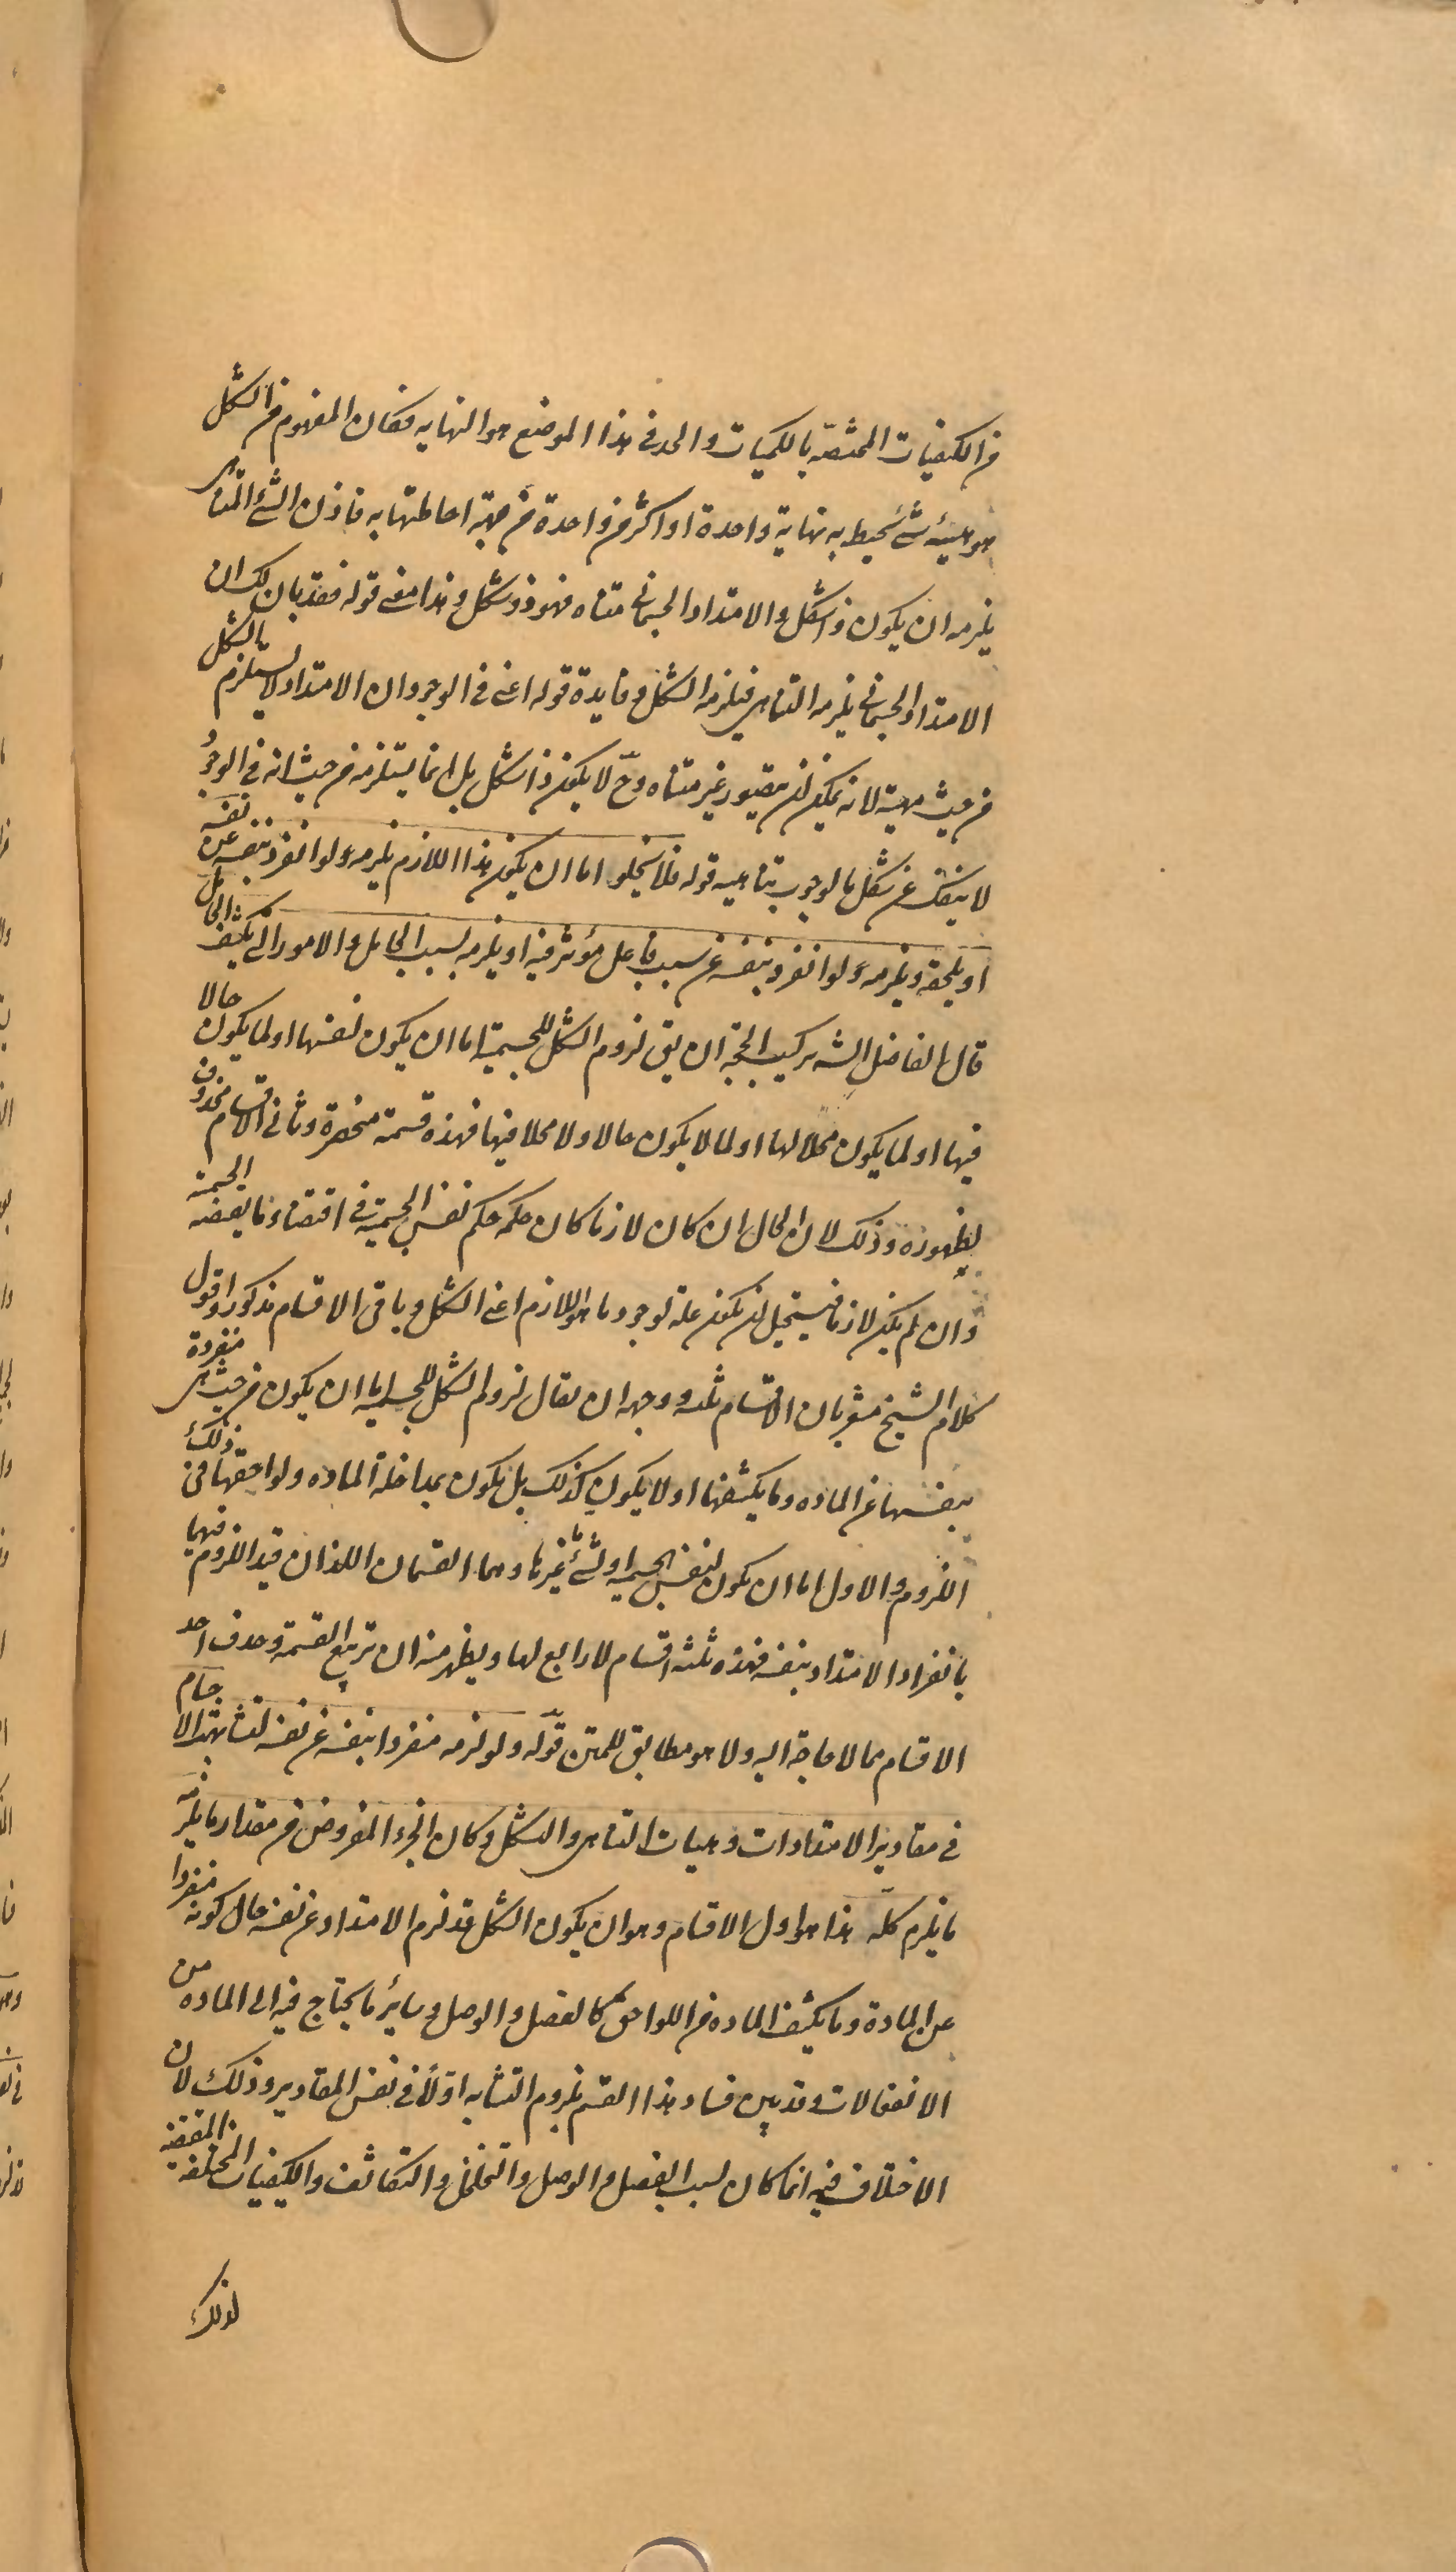 من الكيفيات المختصّة بالكميات والحد فى هذا الموضع هو النهايه فكان المفهوم من الشكل
هو هيئه شئ يحيط به نهاية واحدة او اكثر من واحدة من جهة احاطتها به فاذن الشئ المتناهى
يلزمه ان يكون ذا شكل والامتداد الجسمانى متناه فهو ذو شكل وهذا معنى قوله فقد بان لك ان
الامتداد الجسمانى يلزمه التناهى فيلزمه الشكل وفايدة قوله اعنى فى الوجود ان الامتداد لا يستلزم بالشكل
من حيث مهيته لانه يمكن ان يتصور غير متناه وحّ لا يكون ذا شكل بل انما يستلزمه من حيث انه فى الوجود
لا ينفك عن شكل ما لوجوب تناهيه قوله فلا يخلو اما ان يكون هذا اللازم يلزمه ولو انفرد بنفسه عن نفسه
او يلحقه ويلزمه ولو انفرد بنفسه عن سبب فاعل مؤثر فيه او يلزمه بسبب الحامل والامور التى يكتنف الحامل
قال الفاضل الشه تركيب الحجة ان يق لزوم الشكل للجسمية اما ان يكون لنفسها او لما يكون حالا
فيها او لما يكون محلا لها او لما لا يكون حالا ولا محلا فيها فهذه قسمة منحصرة وثانى الاقسام محذوف
لظهوره وذلك لان الحال ان كان لازما كان حكمه حكم نفس الجسمية فى اقتضاء ما يقتضيه الجسمية
وان لم يكن لازما فيستحيل ان يكون علة لوجود ما هو اللازم اعنى الشكل وباقى الاقسام مذكور واقول
كلام الشيخ مشعر بان الاقسام ثلثه ووجهه ان يقال لزوم الشكل للجسمية اما ان يكون من حيث هى منفردة
بنفسها عن الماده وما يكتنفها او لا يكون كذلك بل يكون بمداخلة الماده ولواحقها فى ذلك
اللزوم والاول اما ان يكون لنفس الجسمية او لشئ غيرها وهما القسمان اللذان قيد اللزوم فيهما
بانفراد الامتداد بنفسه فهذه ثلثه اقسام لا رابع لها ويظهر منه ان تربيع القسمة وحذف احد
الاقسام مما لا حاجة اليه ولا هو مطابق للمتن قوله ولو لزمه منفردا بنفسه عن نفسه لتشابهت الاجسام
فى مقادير الامتدادات وهيات التناهى والشكل وكان الجزء المفروض من مقدار ما يلزمه
ما يلزم كله هذا هو اول الاقسام وهو ان يكون الشكل قد لزم الامتداد عن نفسه حال كونه منفردا
عن المادة وما يكتنف الماده من اللواحق كالفصل والوصل وساير ما يحتاج فيه الى الماده من
الانفعالات وقد بين فساد هذا القسم بلزوم التشابه اوّلا فى نفس المقادير وذلك لان
الاختلاف فيه انما كان بسبب الفصل والوصل والتخلخل والتكاثف والكيفيات المختلفه المقتضيه
لذلك